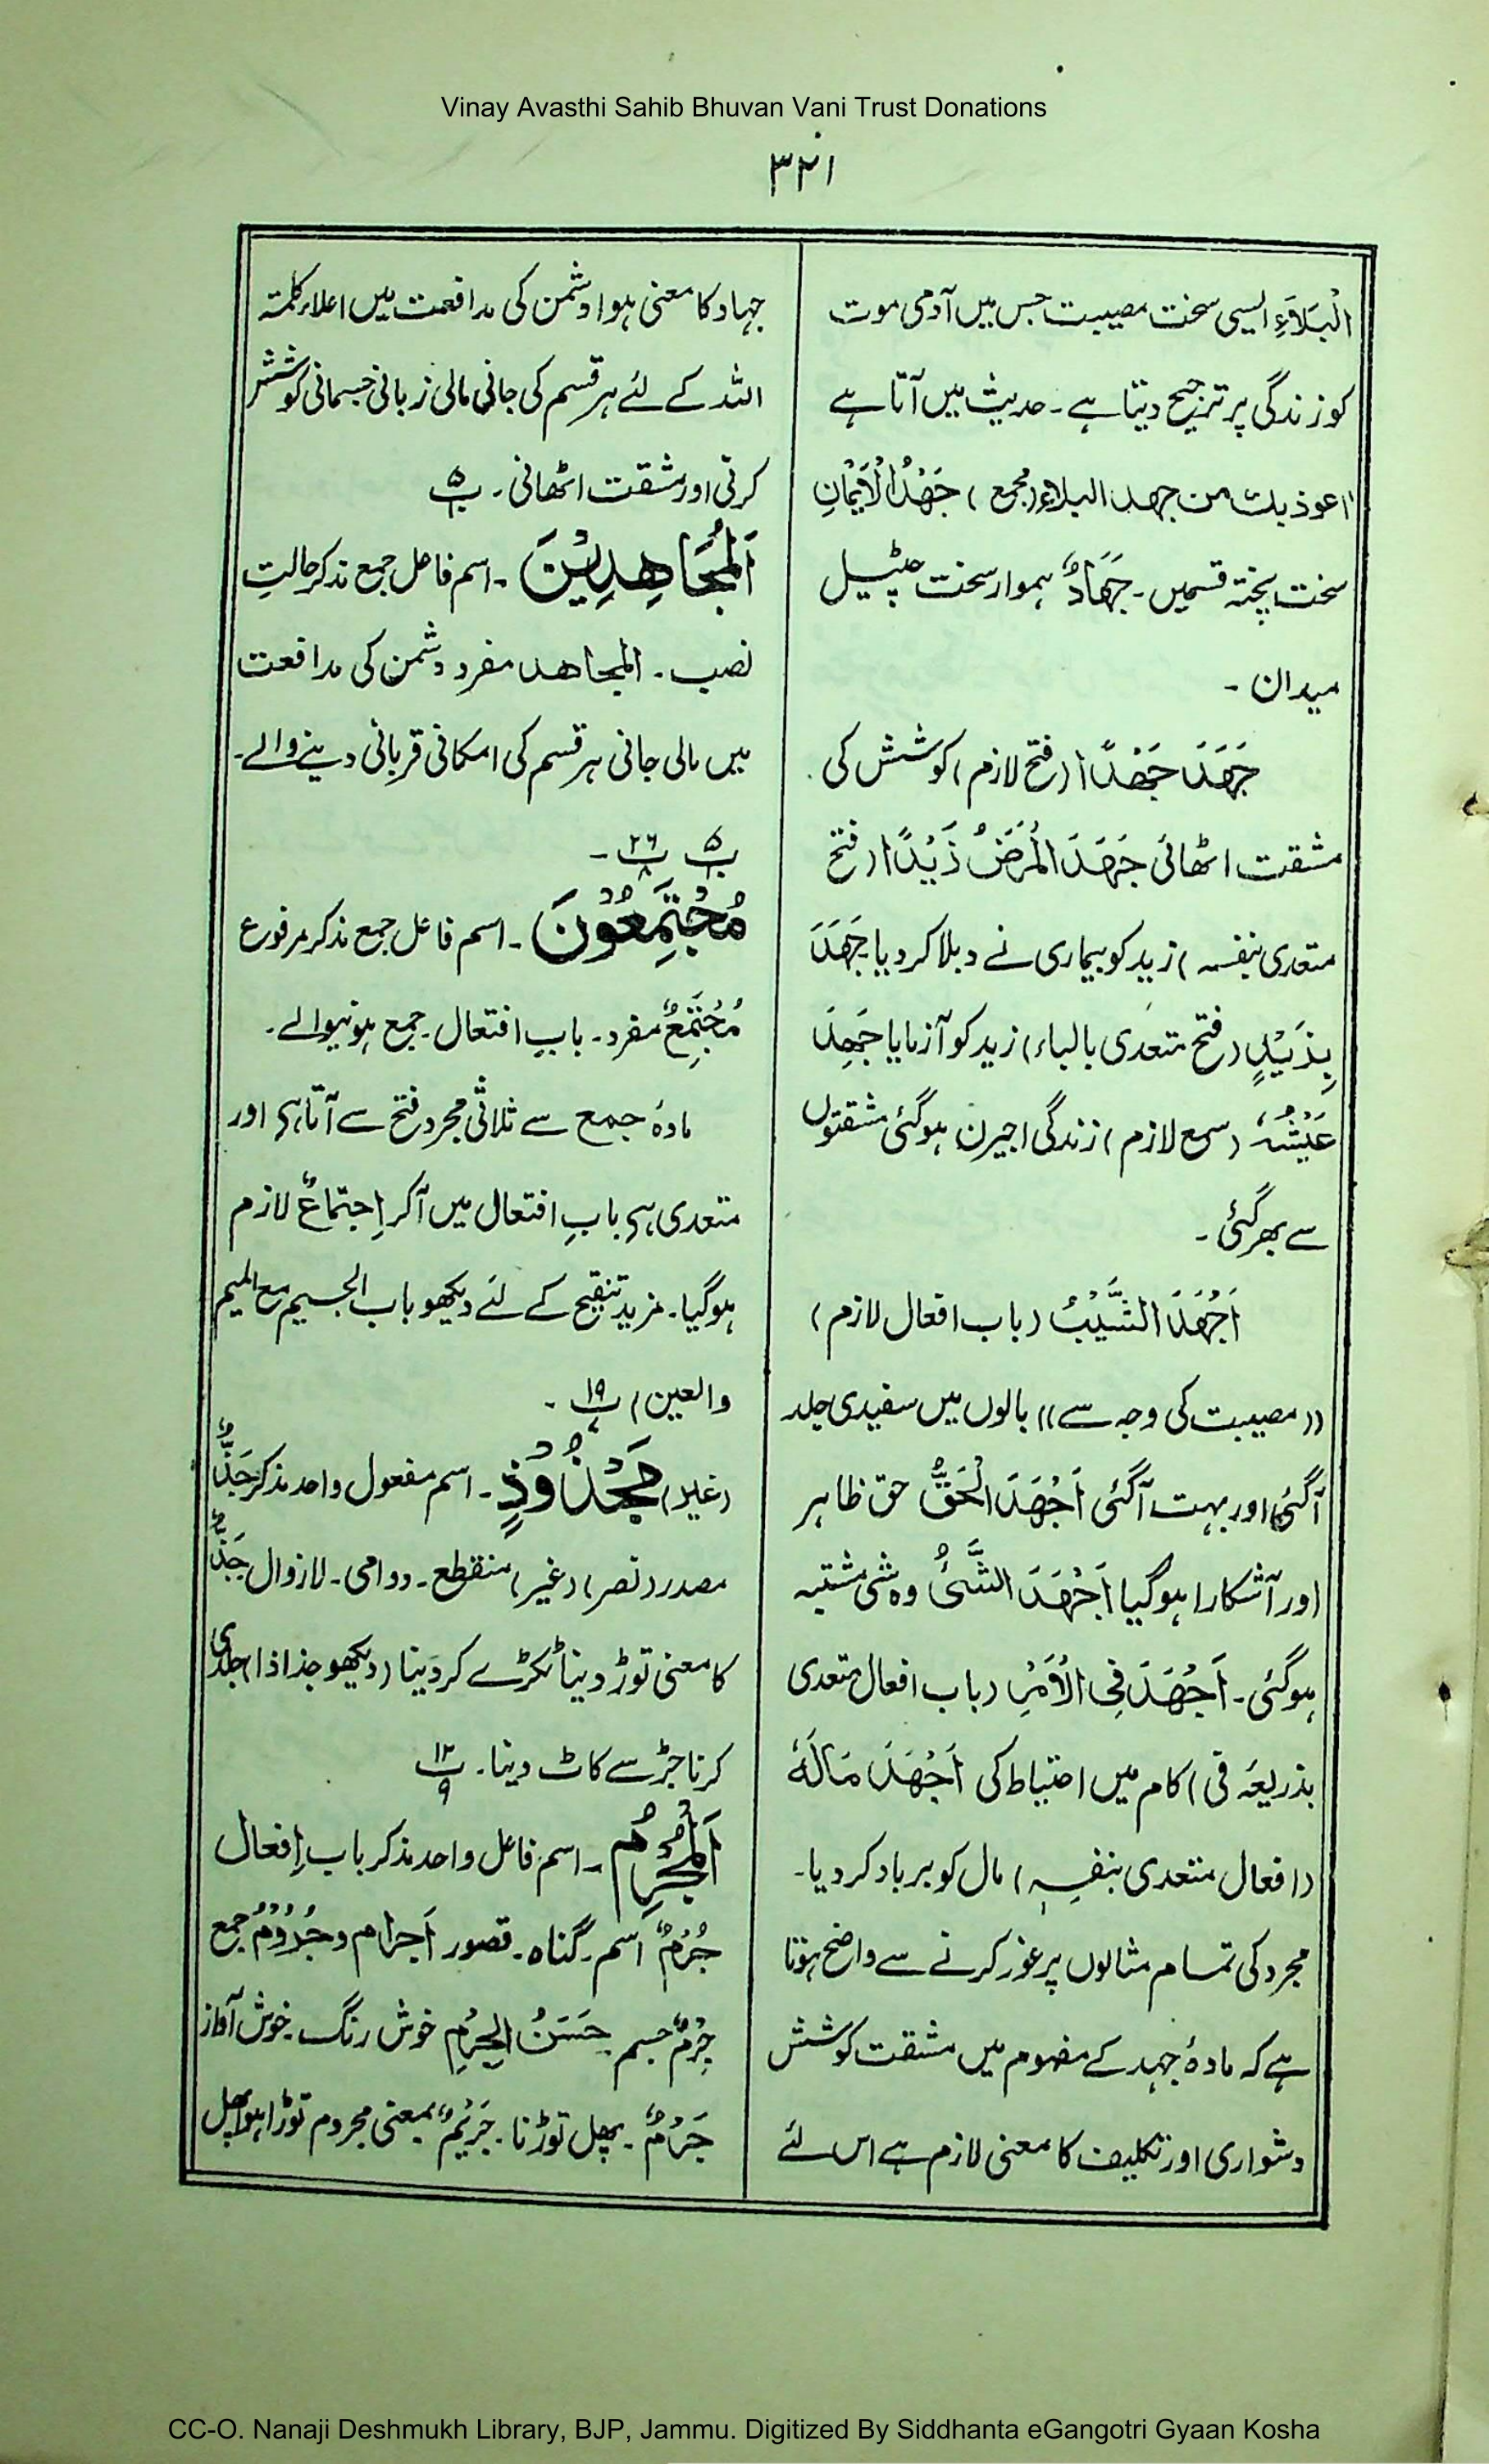 Vinay Avasthi Sahib Bhuvan Vani Trust Donations
۳۲۱
الْبَلَاءِ ایسی سخت مصیبت جس میں آدمی موت
کو زندگی پر ترجیح دیتا ہے ۔ حدیث میں آتا ہے
اعوذ بك من جهد البلاء (مجمع) جَهْدُ الْأَيْمَانِ
سخت پختہ قسمیں ۔ جَهَادٌ ہموار سخت چٹیل
میدان ۔
جَهَدَ جَهْدًا (فتح لازم) کوشش کی
مشقت اٹھائی جَهَدَ الْمَرَضُ زَيْدًا (فتح
متعدی بنفسہ) زید کو بیماری نے دبلا کر دیا جَهَدَ
بِزَيْدٍ (فتح متعدی بالباء) زید کو آزمایا جَهِدَ
عَيْشُهٗ (سمع لازم) زندگی اجیرن ہوگئی مشقتوں
سے بھر گئی ۔
اَجْهَدَ الشَّيْبُ (باب افعال لازم)
((مصیبت کی وجہ سے)) بالوں میں سفیدی جلد
آگئی اور بہت آگئی اَجْهَدَ الْحَقُّ حق ظاہر
اور آشکارا ہوگیا اَجْهَدَ الشَّیْءُ وہ شی مشتبہ
ہوگئی ۔ اَجْهَدَ فِی الْاَمْرِ (باب افعال متعدی
بذریعہ فی) کام میں احتیاط کی اَجْهَدَ مَالَهٗ
(افعال متعدی بنفسہٖ) مال کو برباد کر دیا ۔
مجرد کی تمام مثالوں پر غور کرنے سے واضح ہوتا
ہے کہ مادۂ جہد کے مفہوم میں مشقت کوشش
دشواری اور تکلیف کا معنی لازم ہے اس لئے
جہاد کا معنی ہوا دشمن کی مدافعت میں اعلاء کلمتہ
اللہ کے لئے ہر قسم کی جانی مالی زبانی جسمانی کوشش
کرنی اور مشقت اٹھانی ۔ پ ۵
اَلْمُجَاهِدِيْنَ ۔ اسم فاعل جمع مذکر حالتِ
نصب ۔ المجاهد مفرد دشمن کی مدافعت
میں مالی جانی ہر قسم کی امکانی قربانی دینے والے ۔
پ ۵ پ ۲۶ ۔
مُجْتَمِعُوْنَ ۔ اسم فاعل جمع مذکر مرفوع
مُجْتَمِعٌ مفرد ۔ بابِ افتعال ۔ جمع ہونیوالے ۔
مادۂ جمع سے ثلاثی مجرد فتح سے آتا ہی اور
متعدی ہی بابِ افتعال میں آکر اِجتماعٌ لازم
ہوگیا ۔ مزید تنقیح کے لئے دیکھو باب الجیم مع المیم
والعین) پ ۱۹ ۔
(غیر) مَجْذُوْذٍ ۔ اسم مفعول واحد مذکر جَذٌّ
مصدر (نصر) (غیر) منقطع ۔ دوامی ۔ لازوال جَذٌّ
کا معنی توڑ دینا ٹکڑے کر دینا (دیکھو جذاذا) جلدی
کرنا جڑ سے کاٹ دینا ۔ پ ۱۲ ۹
اَلْمُجْرِمُ ۔ اسم فاعل واحد مذکر باب اِفعال
جُرْمٌ اسم ۔ گناہ ۔ قصور اَجرام و جُرُوْمٌ جمع
جِرْمٌ جسم حَسَنُ الجِرْمِ خوش رنگ ۔ خوش آواز
جَرْمٌ ۔ پھل توڑنا ۔ جَرِيْمٌ بمعنی مجروم توڑا ہوا پھل
CC-O. Nanaji Deshmukh Library, BJP, Jammu. Digitized By Siddhanta eGangotri Gyaan Kosha